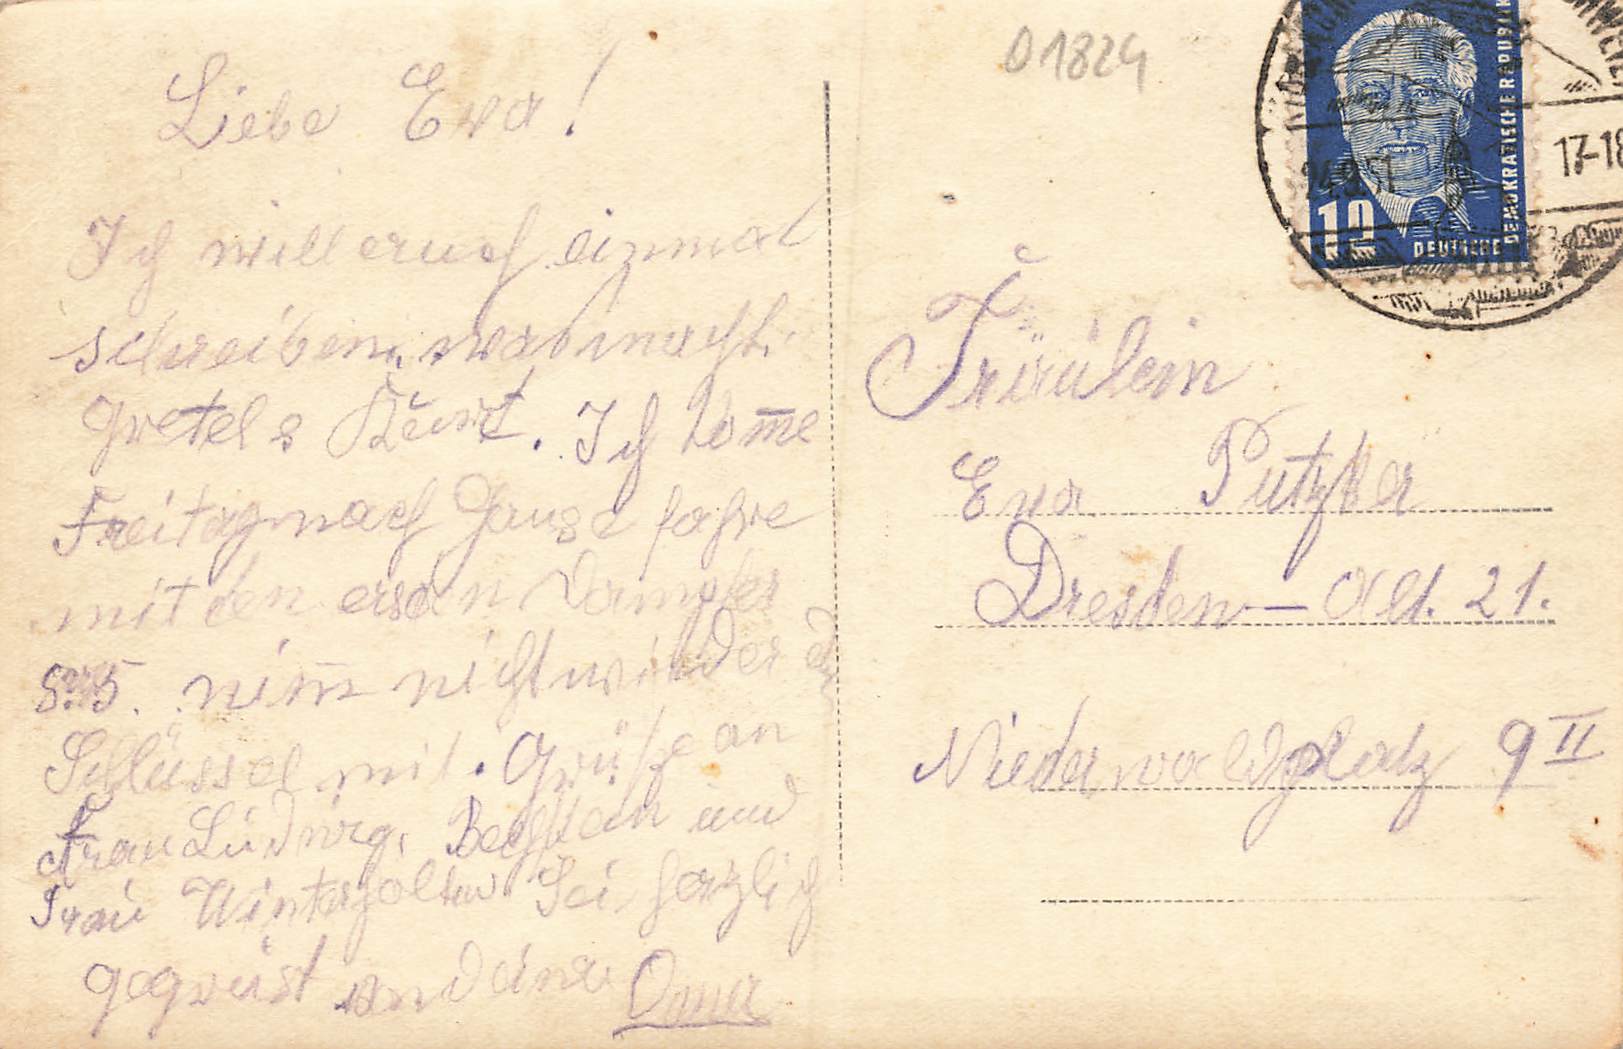 Liebe Eva!
Ich will auch einmal
schreiben, was macht
Gretel & Kurt. Ich kom̅e
Freitag nach Hause fahre
mit den ersten Dampfer
8.05. nim̅ nicht wieder d
Schlüssel mit. Grüße an
Frau Ludwig, Bechstein und
Frau Winterhalter Sei herzlich
gegrüst von deiner Oma
D1824
24.9.51
17-18
12
DEUTSCHE
DEMOKRATISCHE REPUBLIK
Fräulein
Eva Putzker
Dresden - A. 21.
Niederwaldplatz 9 II